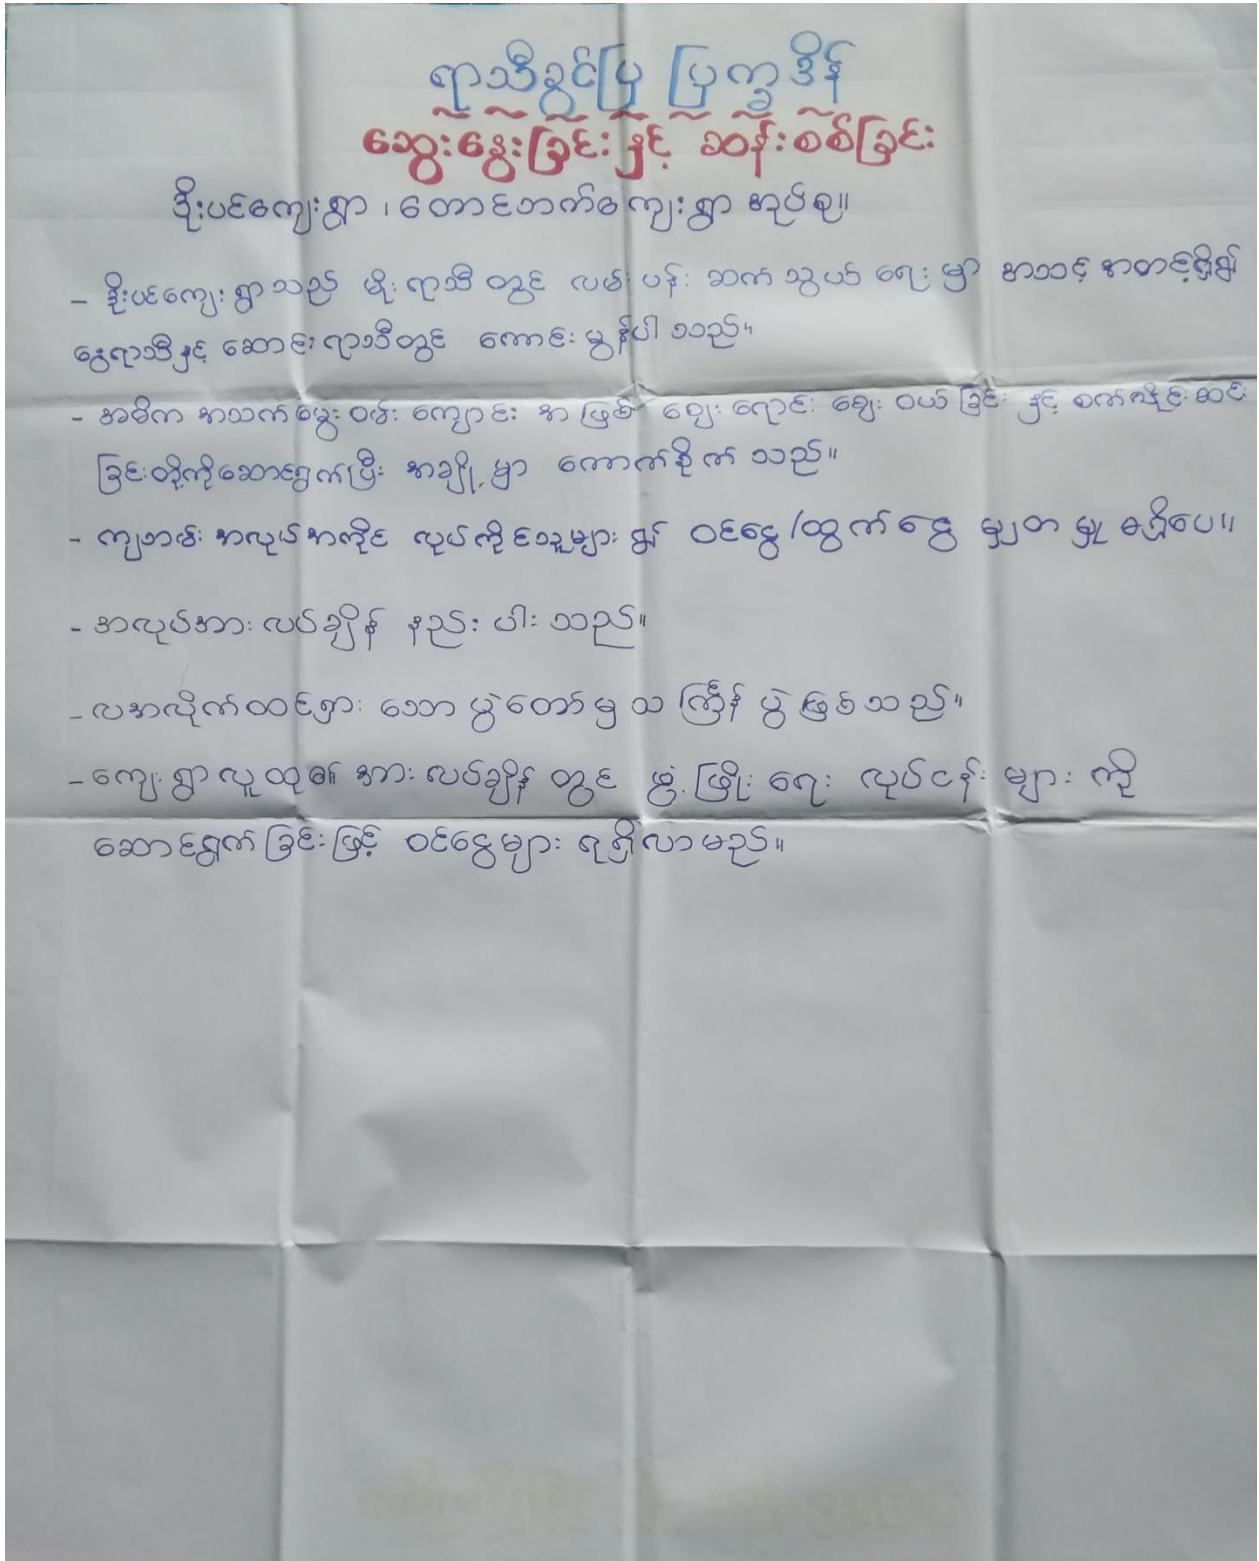 ရာသီခွင်ပြ ပြက္ခဒိန်
ဆွေးနွေးခြင်းနှင့် ဆန်းစစ်ခြင်း
ဒိုးပင်ကျေးရွာ ၊ တောင်ဘက်ကျေးရွာအုပ်စု။
- ဒိုးပင်ကျေးရွာသည် မိုးရာသီတွင် လမ်းပန်းဆက်သွယ်ရေးမှာ အသင့်အတင့်ရှိ၍
နွေရာသီနှင့် ဆောင်းရာသီတွင် ကောင်းမွန်ပါသည်။
- အဓိက အသက်မွေးဝမ်းကျောင်းအဖြစ် ဈေးရောင်းဈေးဝယ်ခြင်းနှင့် စက်ချိုင်ဆင်း
ခြင်းတို့ကိုဆောင်ရွက်ပြီး အချို့မှာ ကောက်စိုက်သည်။
- ကျဘမ်းအလုပ်အကိုင် လုပ်ကိုင်သူများ၍ ဝင်ငွေ/ထွက်ငွေ မျှတမှု မရှိပေ။
- အလုပ်အားလပ်ချိန် နည်းပါးသည်။
- လအလိုက်ထင်ရှားသောပွဲတော်မှ သင်္ကြန်ပွဲဖြစ်သည်။
- ကျေးရွာလူထု၏ အားလပ်ချိန်တွင် ဖွံ့ဖြိုးရေးလုပ်ငန်းများကို
ဆောင်ရွက်ခြင်းဖြင့် ဝင်ငွေများ ရရှိလာမည်။